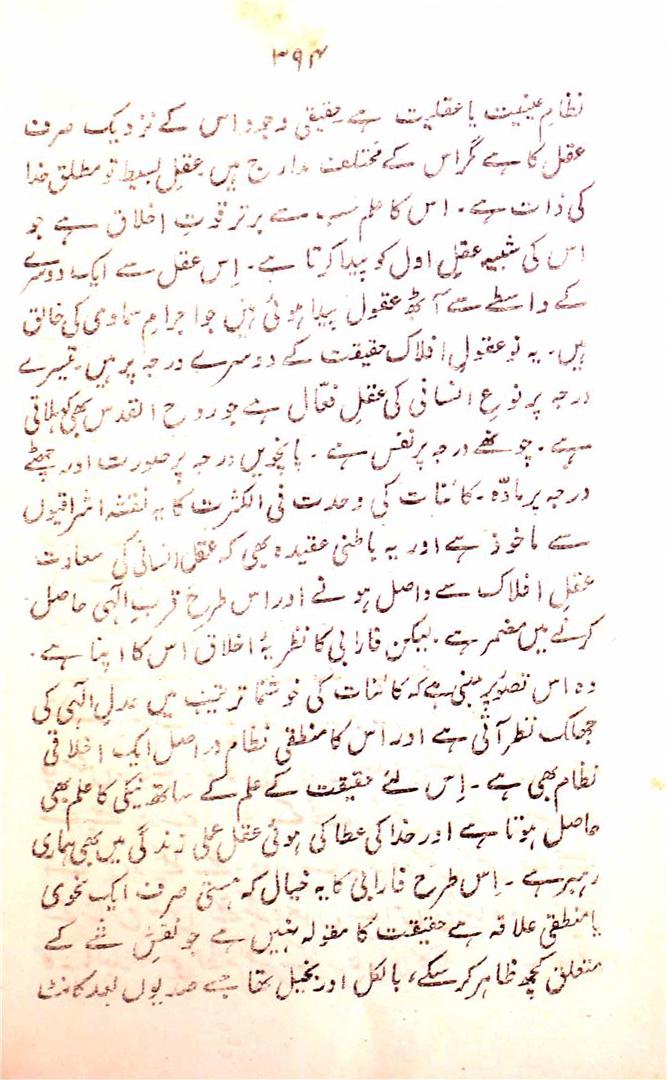 ۳۹۴
نظامِ عینیت یا عقلیت ہے حقیقی وجود اس کے نزدیک صرف
عقل کا ہے گر اس کے مختلف مدارج ہیں۔ عقلِ بسیط تو مطلق خدا
کی ذات ہے۔ اس کا علم سب سے برتر قوتِ اخلاق ہے جو
اس کی شبیہ عقلِ اول کو پیدا کرتا ہے۔ اِس عقل سے ایک دوسرے
کے واسطے سے آٹھ عقول پیدا ہوئی ہیں جو اجرامِ سماوی کی خالق
ہیں۔ یہ نو عقولِ افلاک حقیقت کے دوسرے درجہ پر ہیں۔ تیسرے
درجہ پر نوعِ انسانی کی عقلِ فعّال ہے جو روح القدس بھی کہلاتی
ہے۔ چوتھے درجہ پر نفس ہے۔ پانچویں درجہ پر صورت اور چھٹے
درجہ پر مادّہ۔ کائنات کی وحدت فی الکثرت کا یہ نقشہ اشراقیوں
سے ماخوذ ہے اور یہ باطنی عقیدہ بھی کہ عقلِ انسانی کی سعادت
عقلِ افلاک سے واصل ہونے اور اس طرح قربِ الٰہی حاصل
کرنے میں مضمر ہے۔ لیکن فارابی کا نظریۂ اخلاق اس کا اپنا ہے۔
وہ اس تصوّر پر مبنی ہے کہ کائنات کی خوشنما ترتیب میں عدلِ الٰہی کی
جھلک نظر آتی ہے اور اس کا منطقی نظام دراصل ایک اخلاقی
نظام بھی ہے۔ اِس لئے حقیقت کے علم کے ساتھ نیکی کا علم بھی
حاصل ہوتا ہے اور خدا کی عطا کی ہوئی عقل عملی زندگی میں بھی ہماری
رہبر ہے۔ اِس طرح فارابی کا یہ خیال کہ ہستی صرف ایک نحوی
یا منطقی علاقہ ہے حقیقت کا مقولہ نہیں ہے جو نفسِ شے کے
متعلق کچھ ظاہر کر سکے، بالکل اوریجنل تھا جسے صدیوں بعد کانٹ